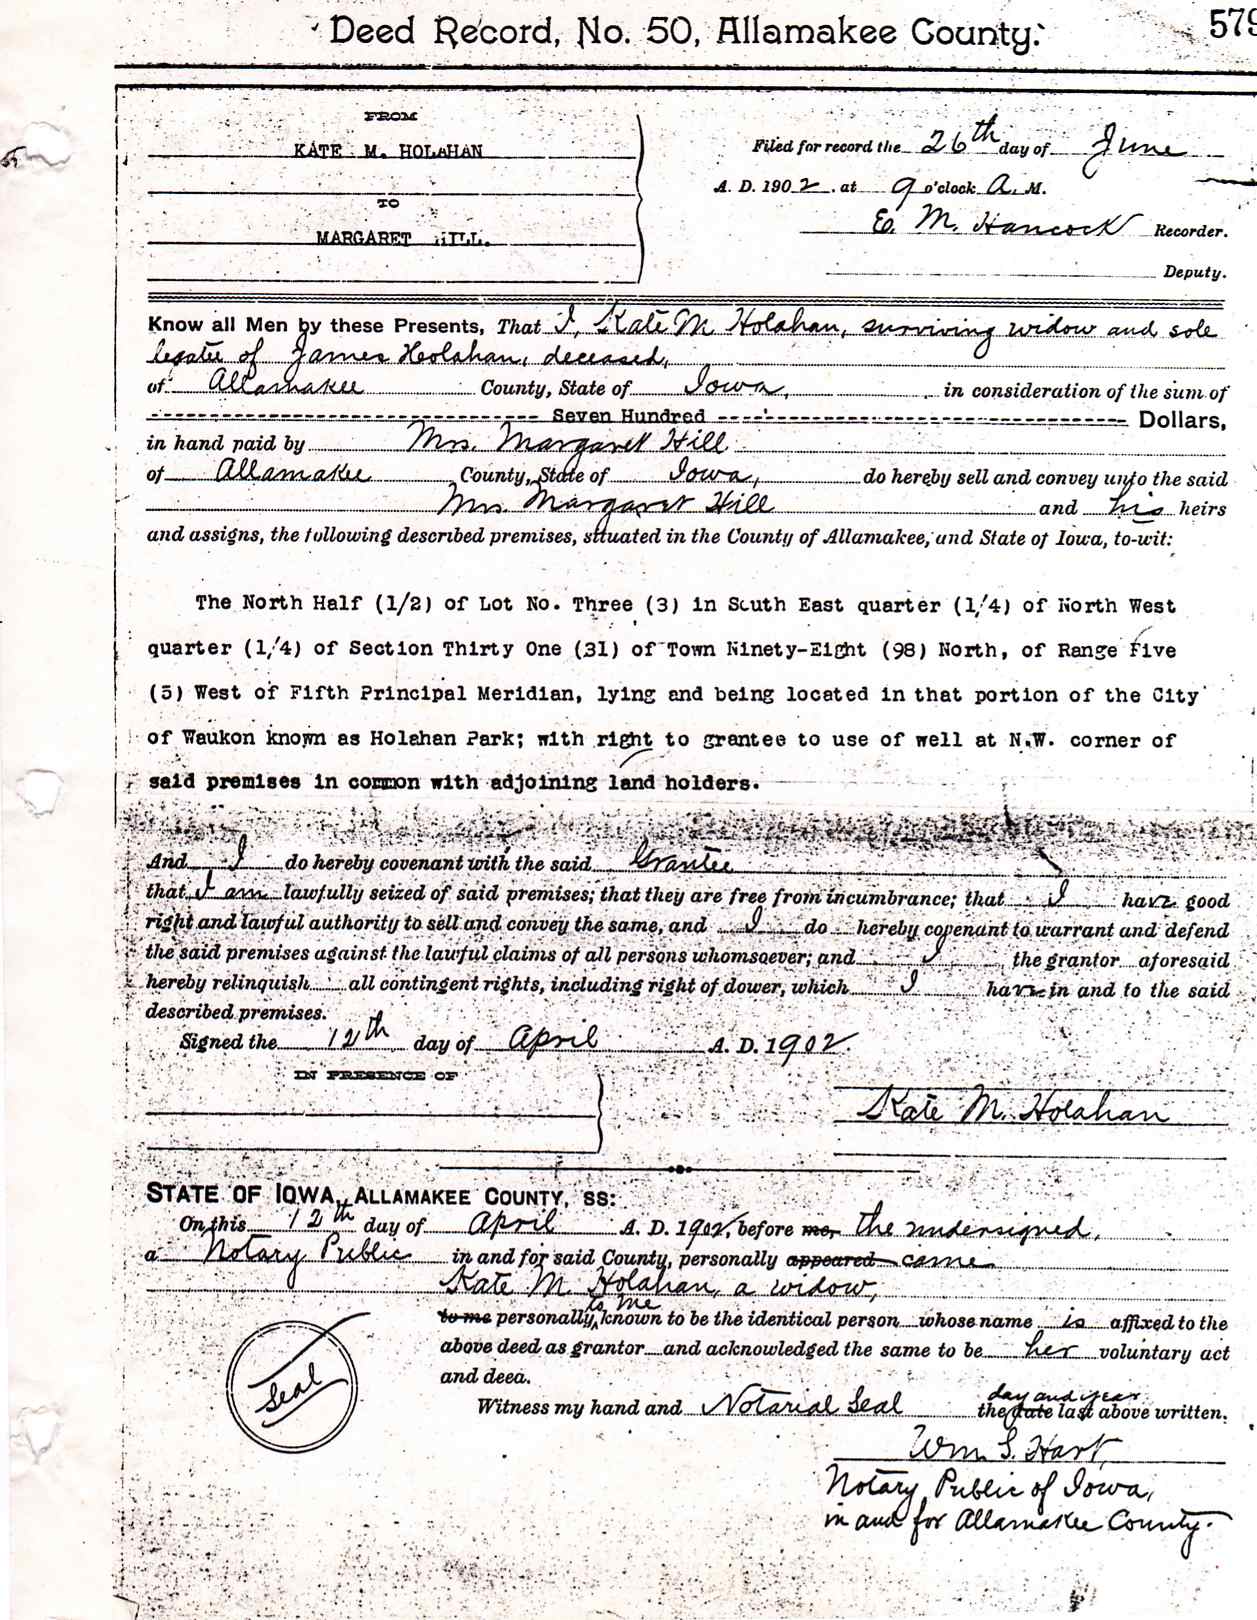 Deed Record, No. 50, Allamakee County.
579
FROM
KATE M. HOLAHAN
TO
MARGARET HILL.
Filed for record the 26th day of June
A. D. 1902 at 9 o'clock A. M.
E. M. Hancock Recorder.
Deputy.
Know all Men by these Presents, That I, Kate M Holahan, surviving widow and sole
legatee of James Holahan, deceased,
of Allamakee County, State of Iowa, in consideration of the sum of
Seven Hundred Dollars,
in hand paid by Mrs. Margaret Hill
of Allamakee County, State of Iowa, do hereby sell and convey unto the said
Mrs. Margaret Hill and his heirs
and assigns, the following described premises, situated in the County of Allamakee, and State of Iowa, to-wit:
The North Half (1/2) of Lot No. Three (3) in South East quarter (1/4) of North West
quarter (1/4) of Section Thirty One (31) of Town Ninety-Eight (98) North, of Range Five
(5) West of Fifth Principal Meridian, lying and being located in that portion of the City
of Waukon known as Holahan Park; with right to grantee to use of well at N.W. corner of
said premises in common with adjoining land holders.
And I do hereby covenant with the said Grantee
that I am lawfully seized of said premises; that they are free from incumbrance; that I have good
right and lawful authority to sell and convey the same, and I do hereby covenant to warrant and defend
the said premises against the lawful claims of all persons whomsoever; and I the grantor aforesaid
hereby relinquish all contingent rights, including right of dower, which I have in and to the said
described premises.
Signed the 12th day of April A. D. 1902.
IN PRESENCE OF
Kate M. Holahan
STATE OF IOWA, ALLAMAKEE COUNTY, SS:
On this 12th day of April A. D. 1902, before me, the undersigned,
a Notary Public in and for said County, personally appeared came
Kate M. Holahan, a widow,
to me
to me personally known to be the identical person whose name is affixed to the
above deed as grantor and acknowledged the same to be her voluntary act
and deed.
Seal
day and year
Witness my hand and Notarial Seal the date last above written.
Wm. S. Hart,
Notary Public of Iowa,
in and for Allamakee County.